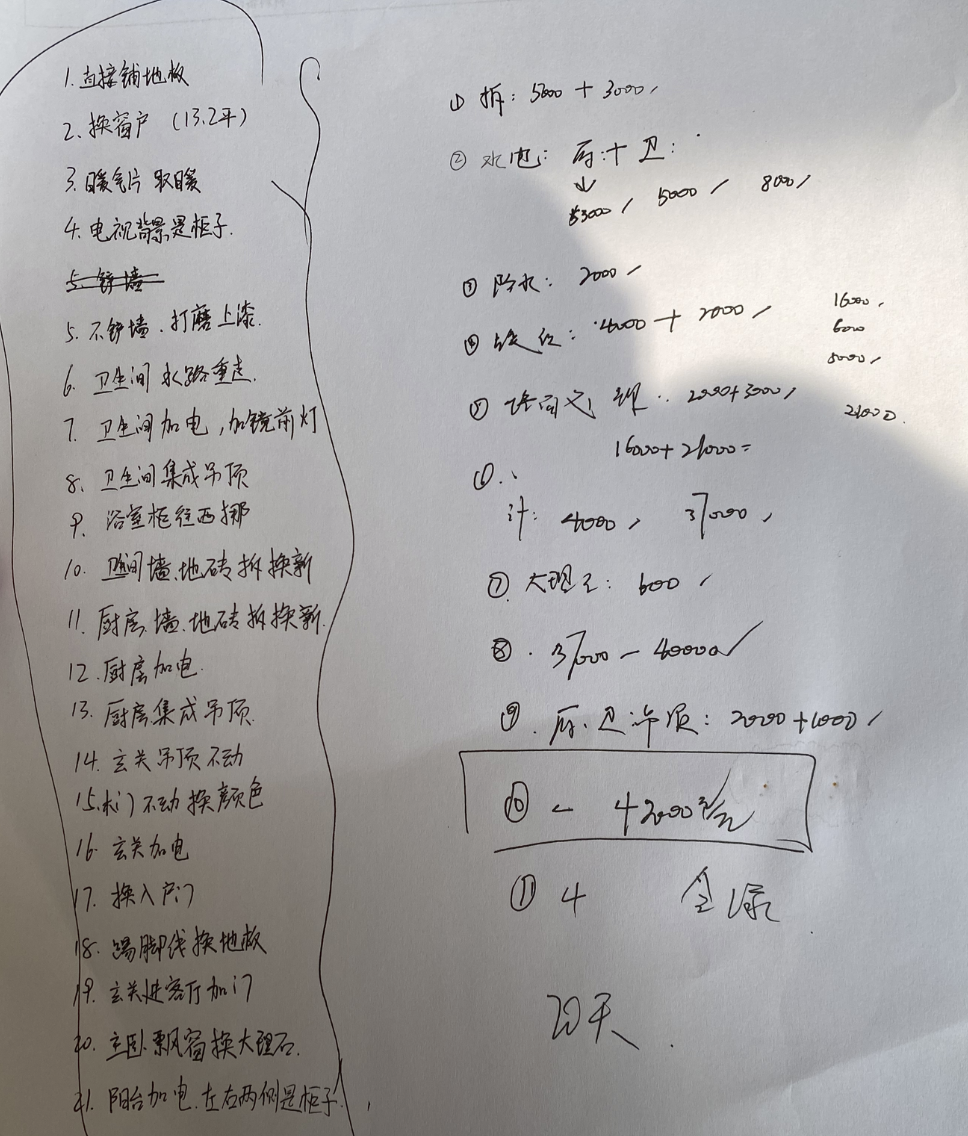 1.直接铺地板
2.换窗户 (13.2平)
3.暖气片 取暖
4.电视背景是柜子.
5.铲墙
5.不铲墙、打磨上漆.
6.卫生间 水路重走.
7.卫生间加电,加镜前灯
8.卫生间集成吊顶
9.浴室柜往西挪
10.卫生间墙、地砖拆换新
11.厨房、墙、地砖拆换新.
12.厨房加电.
13.厨房集成吊顶.
14.玄关吊顶不动
15.木门不动换颜色
16.玄关加电
17.换入户门
18.踢脚线换地板
19.玄关进客厅加门
20.主卧飘窗换大理石.
21.阳台加电.左右两侧是柜子.
① 拆: 5000 + 3000
② 水电: 厨 + 卫:
↓
3000 / 5000 / 8000
③ 防水: 2000
④ 4000 + 2000
16000
6000
⑤ 2000+3000
21000
16000+21000=
⑥
计: 4000, 37000,
⑦ 大理石: 600
⑧. 37000 - 40000
⑨. 厨.卫吊顶: 2000+1000
⑩ - 42000
⑪ 4
20天.